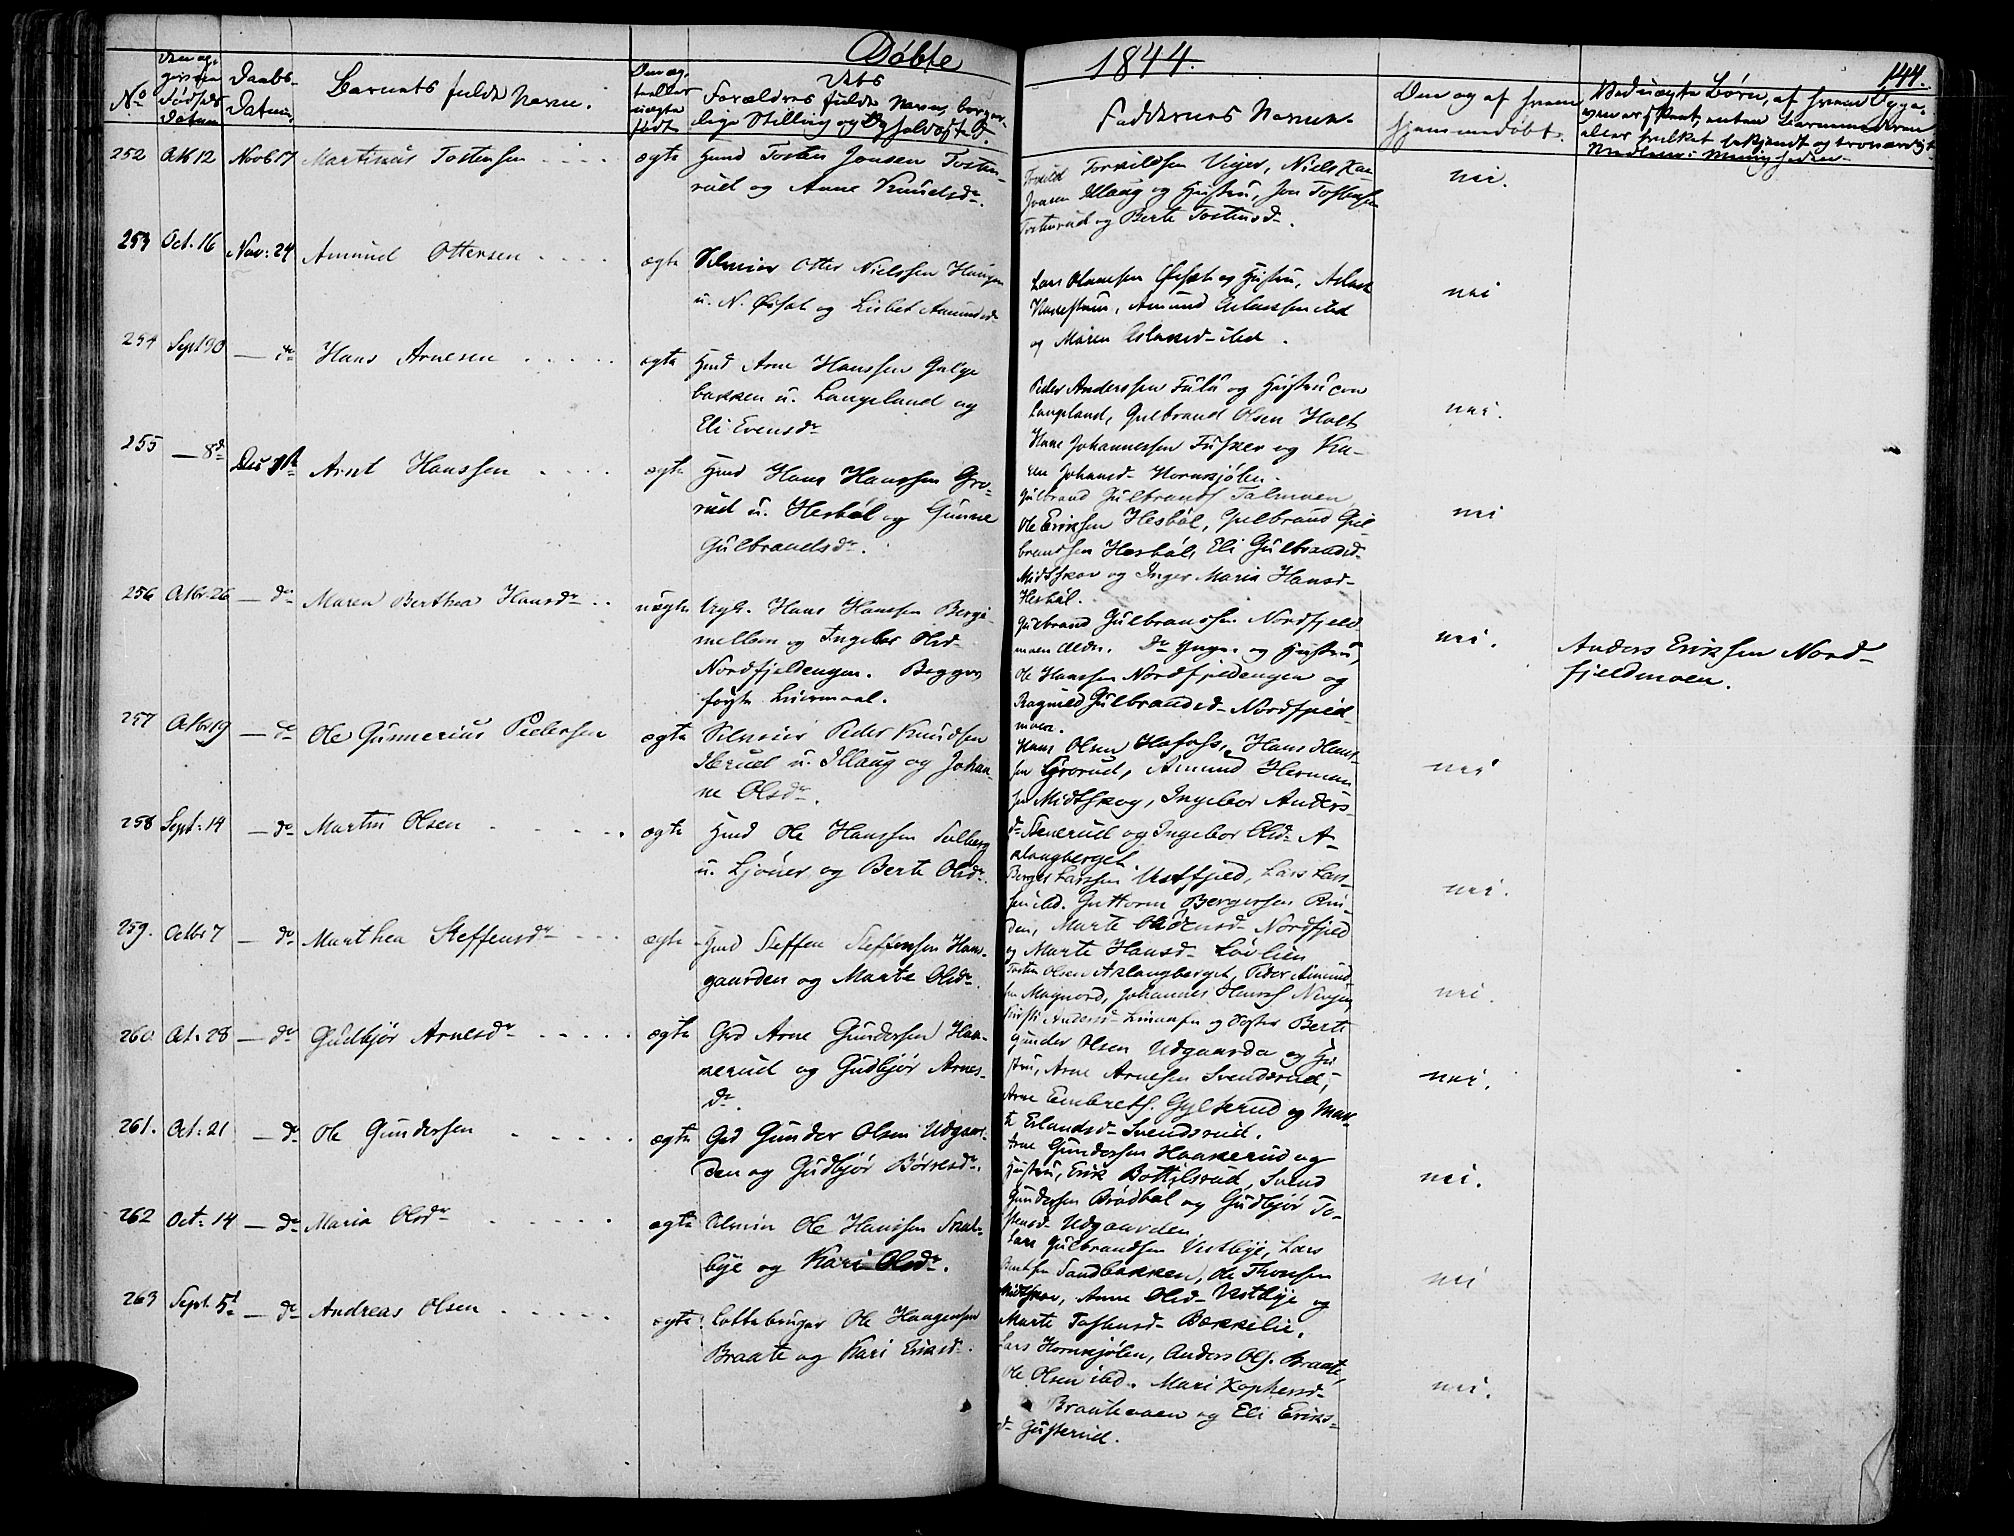 Døbte 1844.
144.
No
Fødsels Datum
Daabs-
Datum.
Barnets fulde Navn.
Forældres fulde Navne, borger-
lige Stilling og
Faddernes Navne.
Den og af hvem
hjemmedøbt.
252 Oct 12 Novb 17 Martinus Tostensen ægte Hmd Tosten Jonsen Tosten-
rud og Anne Knudsdr.
Torkildsen Viger, Niels
Illaug og Hustru, Jon Tostensen
Tostenrud og Berte Tostensd.
nei.
253 Oct. 16 Nov: 24 Amund Ottersen ægte Selveier Otter Nielssen Haugen
u. N. Øpsat og Lisbet Amundsd
Lars Olavesen Øpsat og Hustru, Aslak
Amund Erlandsen ibd
og Maren Aslaksd ibd.
nei
254 Sept 30 — do Hans Arnesen ægte Hmd Arne Hanssen Galge-
bakken u. Langeland og
Eli Evensdr
Peder Anderssen Fulu og Hustru
Langeland, Gulbrand Olsen Holt
Hans Johannessen Fusker og Ka-
ren Johansd Hornsjølen.
nei.
255 — 8de Dec 1ste Arnt Hanssen ægte Hmd Hans Hanssen Gro-
rud u. Hesbøl og Gunne
Gulbrandsdr.
Gulbrand Gulbrands Talmoen
Ole Erikssen Hesbøl, Gulbrand Gul-
brandsen Hesbøl, Eli Gulbrandsd
Midtskov og Inger Maria Hansd
Hesbøl.
nei
256 Octbr 26 — do Maren Berthea Hansdr uægte Ungk. Hans Hanssen Berge-
mellem og Ingebor Olsd
Nordfjeldengen. Begges
første Leiermaal.
Gulbrand Gulbranssen Nordfjeld-
moen ældre. Do Yngre og Hustru,
Ole Hanssen Nordfjeldengen og
Ragnild Gulbrandsd Nordfjeld-
moen.
nei.
Anders Eriksen Nord-
fjeldmoen.
257 Octbr 19 — do Ole Gunnerius Pedersen ægte Selveier Peder Knudsen
Skrud u. Illaug og Johan-
ne Olsdr.
Hans Olsen Hofoss, Hans Hans-
sen Grorud, Amund Herman-
sen Midtskog, Ingebor Anders-
dr Stenerud og Ingebor Olsd A-
slangberget.
nei
258 Sept: 14 — do Martin Olsen ægte Hmd Ole Hanssen Solberg
u. Ljøner og Berte Olsdr.
Berger Larssen Vestfjeld, Lars Lars-
sen ibd. Guttorm Bergersen Rui-
den, Marte Nordfjeld
og Marte Hansd Løvlien
nei.
259. Octbr 7 — do Marthea Steffensdr ægte Hmd Steffen Steffensen Hans-
gaarden og Marte Olsdr.
Tosten Olsen Aslangberget, Peder Amund-
sen Magnord, Johannes
Kirsti Andersd og Datter Berte
nei.
260 Oct: 28 — do Gudbjør Arnesdr ægte Grd Arne Gundersen Haa-
kerud og Gudbjør Arnes-
dr.
Gunder Olsen Udgaarden og Hu-
stru, Arne Arnesen Svendsrud,
Arne Embrets. Gylterud og Mar-
te Erlandsd Svendsrud.
nei.
261. Oct: 21 — do Ole Gundersen ægte Grd Gunder Olsen Udgaar-
den og Gudbjør Børresdr.
Arne Gundersen Haakerud og
Hustru, Erik Bottilsrud, Svend
Gundersen Brødbøl og Gudbjør To-
stensd Udgaarden
nei.
262 Oct: 14 — do Maria Olsdr ægte Selveier Ole Hanssen Snal-
bye og Kari Olsdr.
Lars Gulbrandsen Vestbye, Lars
Sandbakken, Ole Thoresen
Midtskov, Anne Olsd Vestbye og
Marte Tostensd Bækkelie.
nei
263 Sept. 5t — do Andreas Olsen ægte Lottebruger Ole Haagensen
Braate og Kari Eriksd.
Lars Hornsjølen, Anders Ols. Braate,
Ole Olsen ibd. Mari Kophersd
Braatemoen og Eli Eriks-
dr Gusterud.
nei.